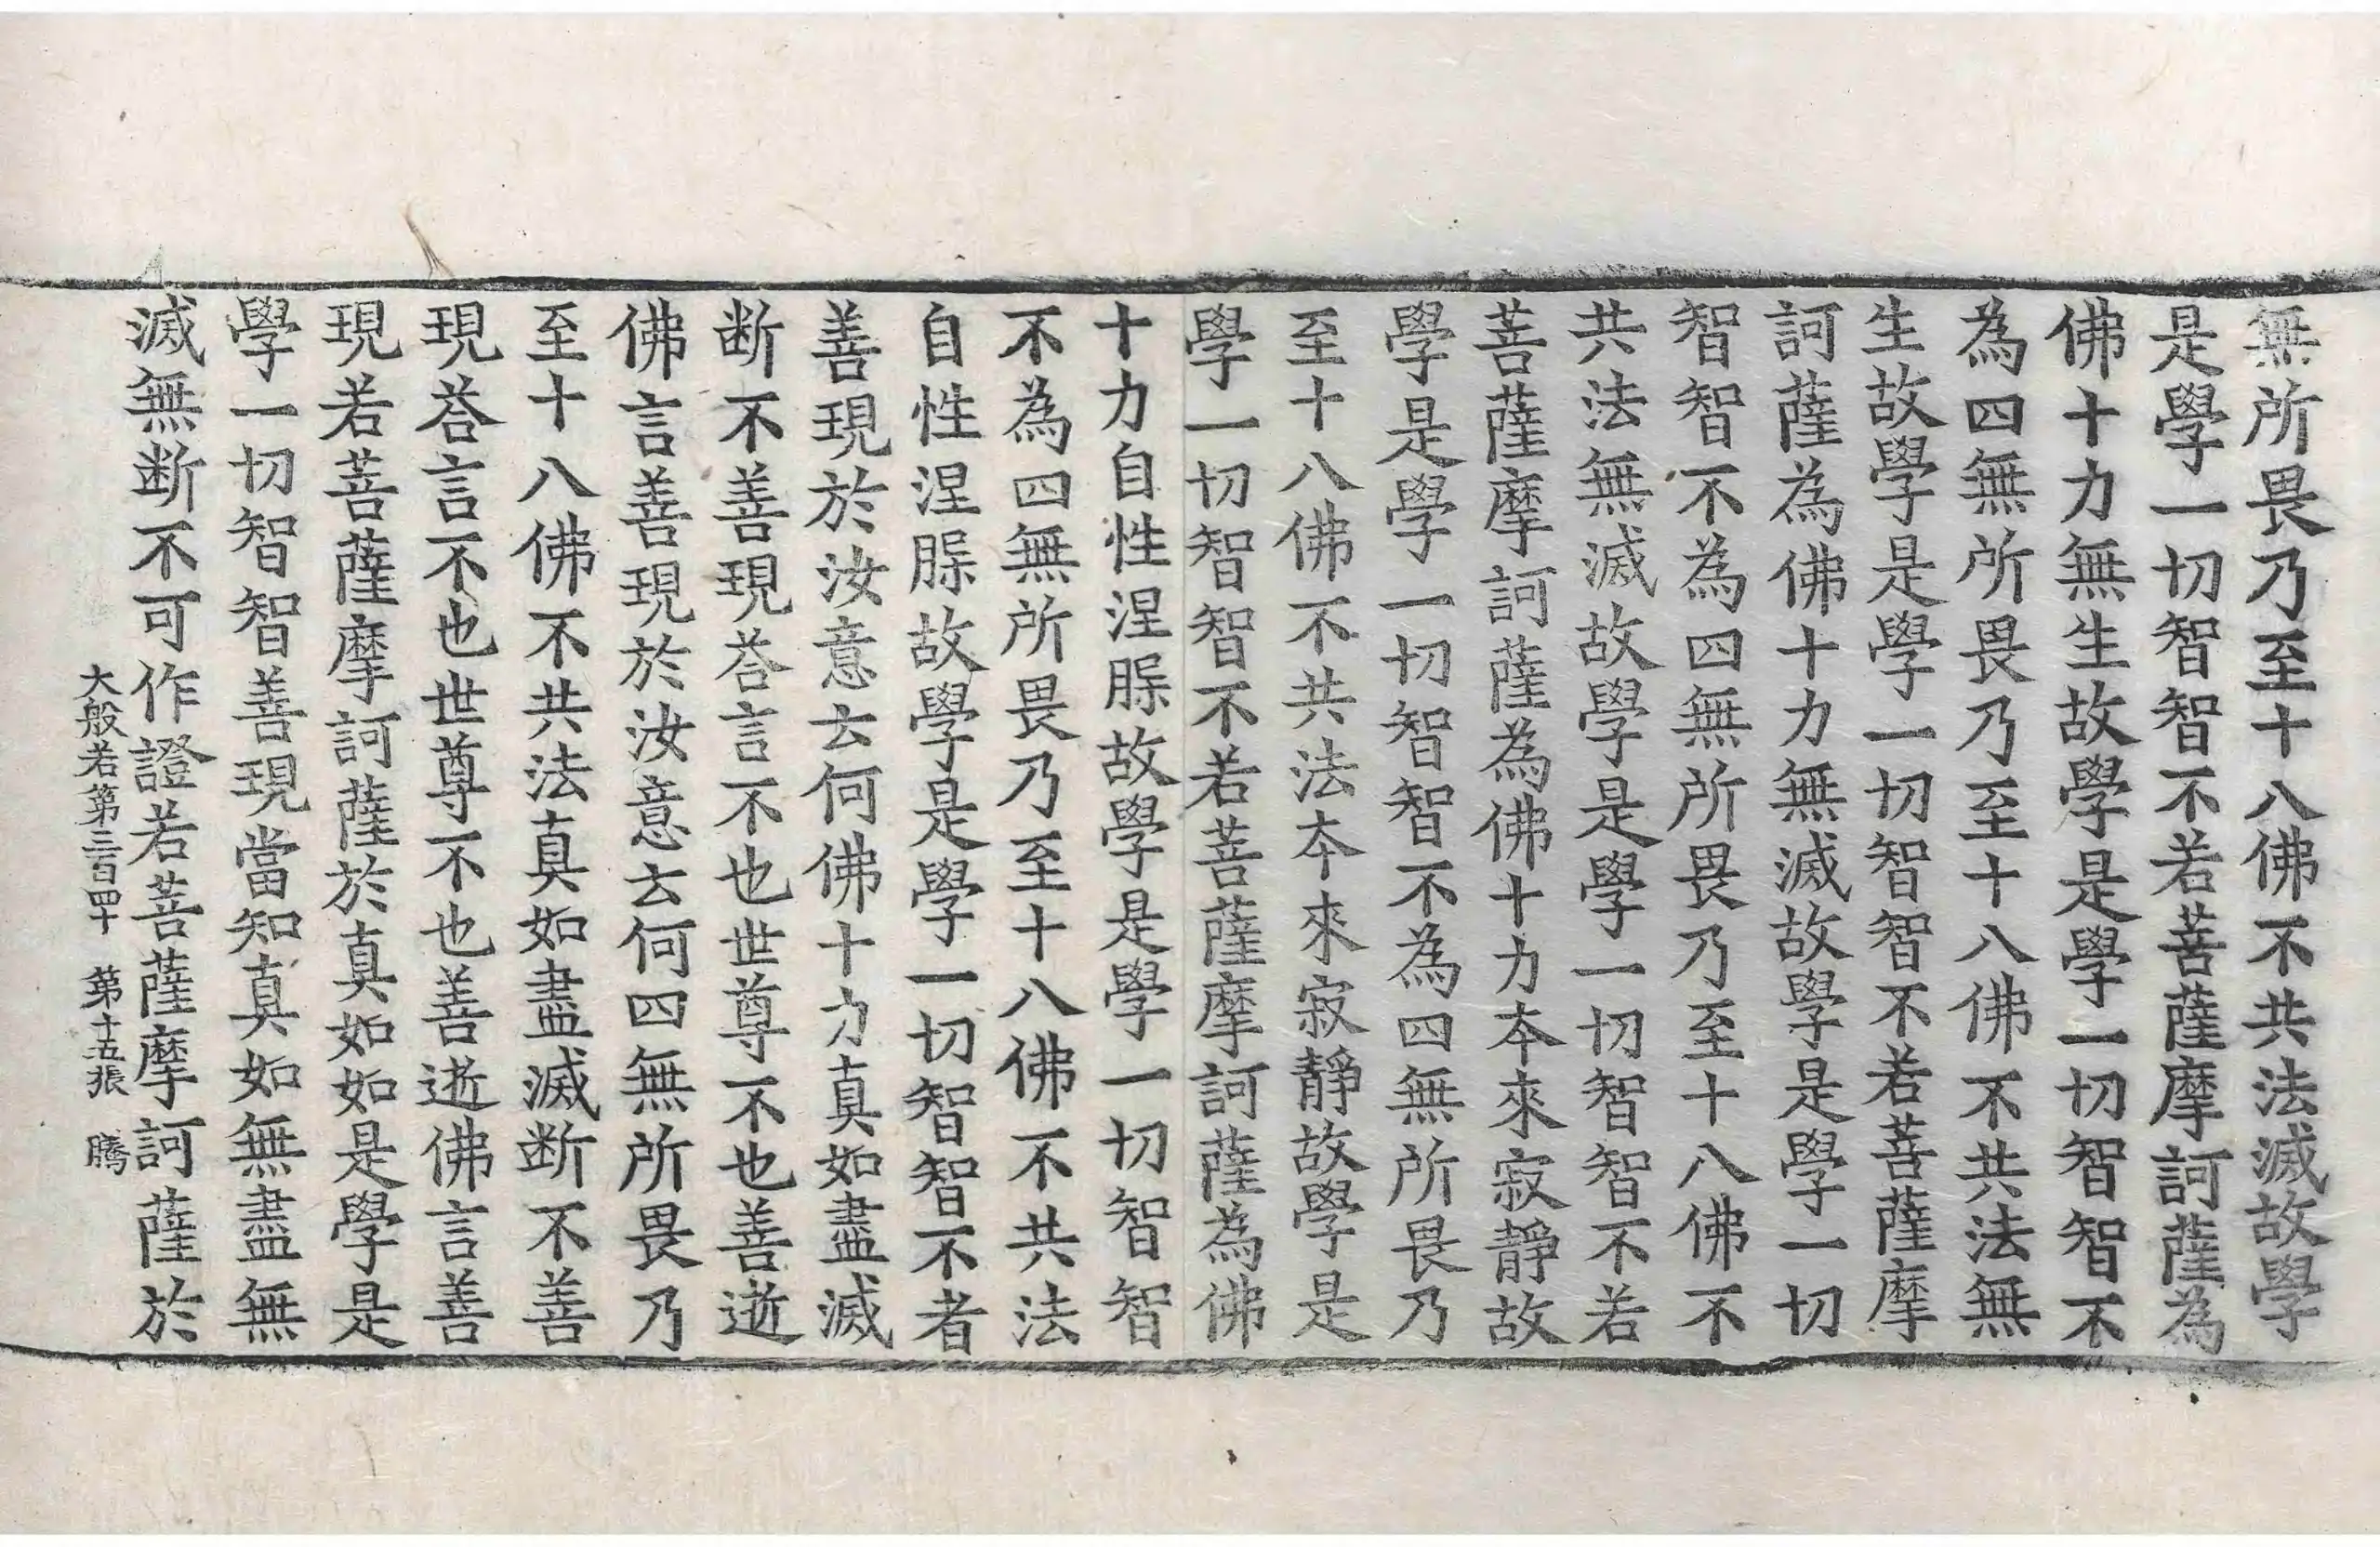 無所畏乃至十八佛不共法滅故學
是學一切智智不若菩薩摩訶薩為
佛十力無生故學是學一切智智不
為四無所畏乃至十八佛不共法無
生故學是學一切智智不若菩薩摩
訶薩為佛十力無滅故學是學一切
智智不為四無所畏乃至十八佛不
共法無滅故學是學一切智智不若
菩薩摩訶薩為佛十力本來寂靜故
學是學一切智智不為四無所畏乃
至十八佛不共法本來寂靜故學是
學一切智智不若菩薩摩訶薩為佛
十力自性涅槃故學是學一切智智
不為四無所畏乃至十八佛不共法
自性涅槃故學是學一切智智不者
善現於汝意云何佛十力真如盡滅
断不善現荅言不也世尊不也善逝
佛言善現於汝意云何四無所畏乃
至十八佛不共法真如盡滅断不善
現荅言不也世尊不也善逝佛言善
現若菩薩摩訶薩於真如如是學是
學一切智智善現當知真如無盡無
滅無断不可作證若菩薩摩訶薩於
大般若第三百四十 第十五張 騰